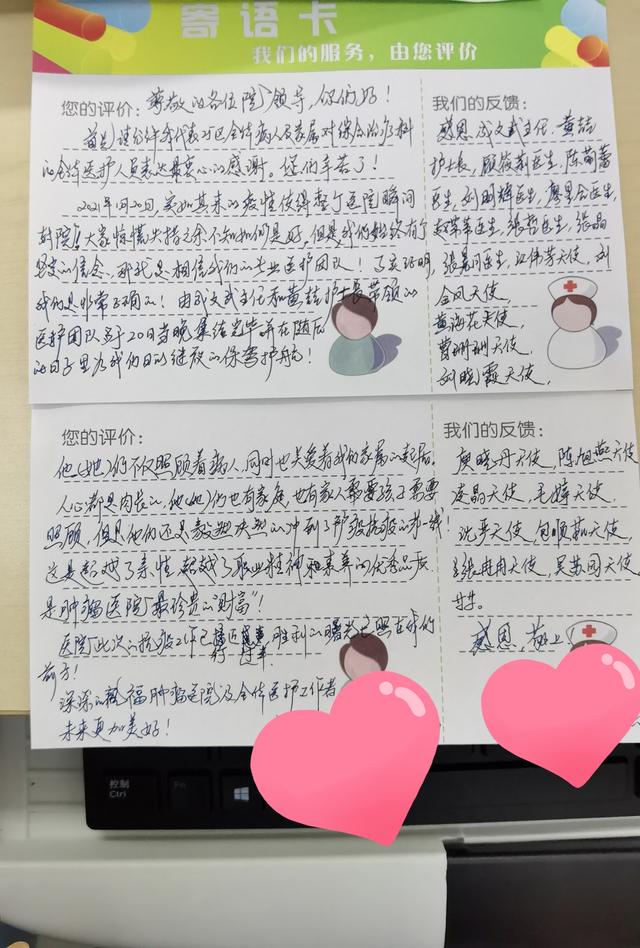 寄语卡
我们的服务，由您评价
您的评价：尊敬的各位院领导，你们好！
首先请允许我代表对区全体病人及家属对综合治疗科
的全体医护人员表达最衷心的感谢。您们辛苦了！
2021年10月20日，突如其来的疫情使得整个医院瞬间
封院！大家惊慌失措之余不知如何是好，但是我们始终有个
坚定的信念，那就是相信我们的专业医护团队！事实证明，
我们是非常正确的！由成文武主任和黄喆护士长带领的
医护团队于20日当晚集结完毕并在随后
的日子里为我们日以继夜的保驾护航！
我们的反馈：
感恩 成文武主任，黄喆
护士长，顾筱莉医生，陈萌蕾
医生，刘明辉医生，廖星会医生，
赵苇苇医生，张哲医生，张晶
医生，江伟芳天使，刘
金凤天使，
黄海花天使，
曹琍琍天使，
刘晓霞天使，
您的评价：
他(她)们不仅照顾着病人，同时也关爱着我的家属的起居。
人心都是肉长的，他(她)们也有家庭，也有家人需要孩子需要
照顾，但是他们还是毅然决然的冲到了防疫抗疫的第一线！
这是超越了亲情，超越了职业精神和素养的优秀品质
是肿瘤医院最珍贵的"财富"！
医院此次的抗疫工作已接近尾声 胜利的曙光已照在我的
行过半
前方！
深深的祝福肿瘤医院及全体医护工作者
未来更加美好！
我们的反馈：
庾晓丹天使，陈旭燕天使
凌晶天使，毛婷天使
沈平天使，包顺茹天使
张冉冉天使，吴苏园天使
等等。
感恩，敬上
控制
Ctrl
Fn